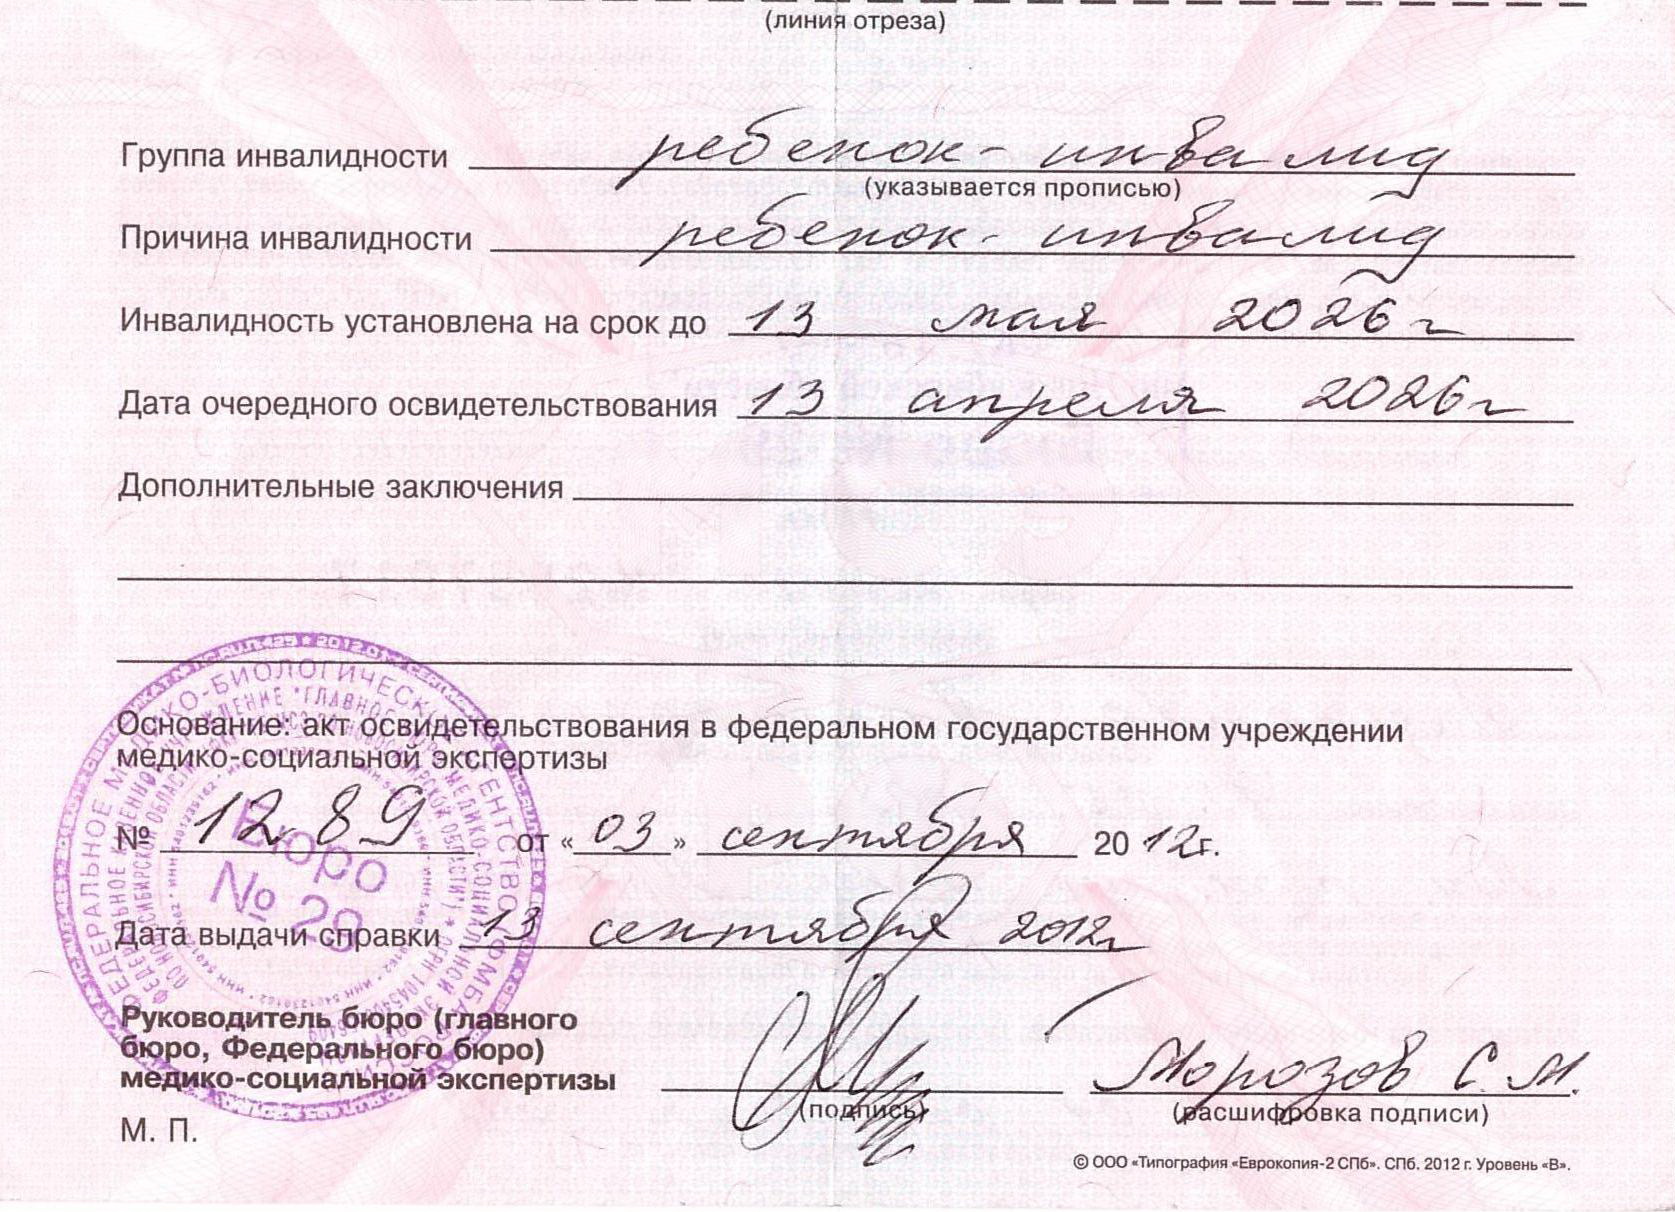 (линия отреза)
Группа инвалидности ребенок-инвалид
(указывается прописью)
Причина инвалидности ребенок-инвалид
Инвалидность установлена на срок до 13 мая 2026 г
Дата очередного освидетельствования 13 апреля 2026 г
Дополнительные заключения
Основание: акт освидетельствования в федеральном государственном учреждении
медико-социальной экспертизы
№ 1289 от «03» сентября 2012г.
Бюро
№ 29
Дата выдачи справки 13 сентября 2012г
Руководитель бюро (главного
бюро, Федерального бюро)
медико-социальной экспертизы Морозов С. М.
(подпись) (расшифровка подписи)
М. П.
© ООО «Типография «Еврокопия-2 СПб». СПб. 2012 г. Уровень «В».